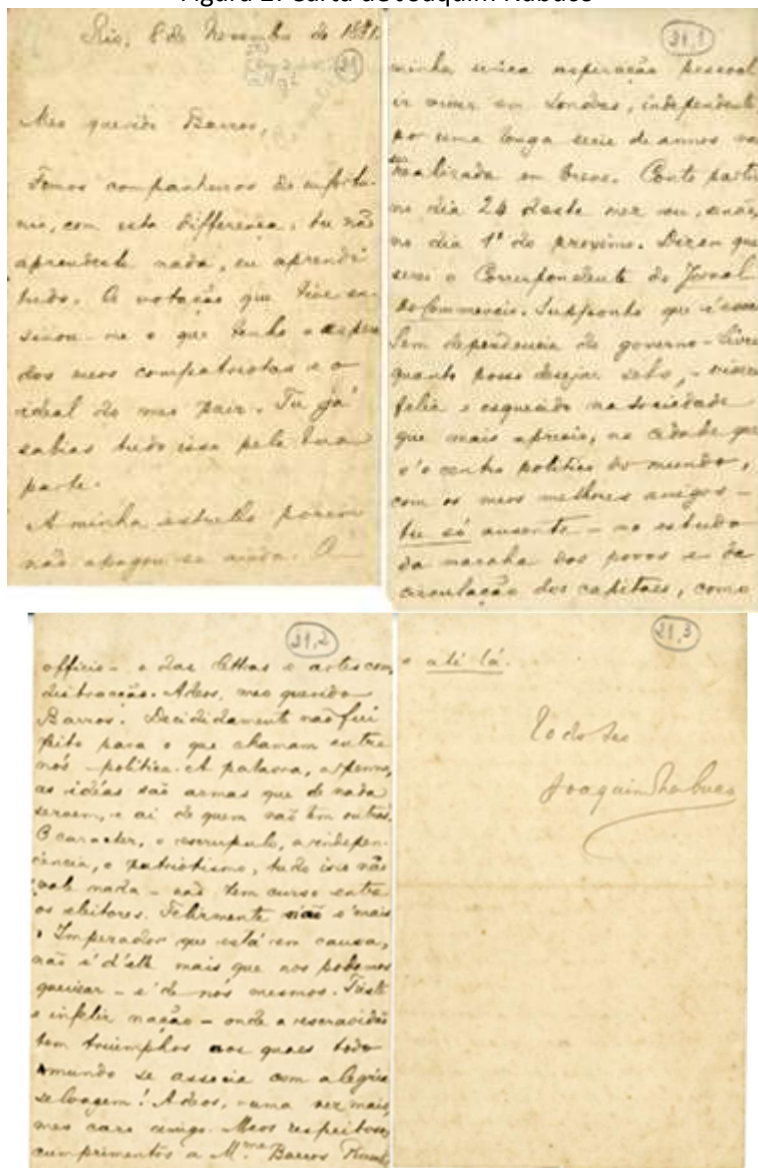 Figura 2: Carta de Joaquim Nabuco
Rio, 8 de Novembro de 1881.
31
Meo querido Barros,
Fomos companheiros de infortu-
nio, com esta differença: tu não
aprendeste nada, eu aprendi
tudo. A votação que tive en-
sinou-me o que tenho a esperar
dos meos compatriotas e o
ideal do meo paiz. Tu já
sabias tudo isso pela tua
parte.
A minha estrella porem
não apagou-se ainda. A
31,1
minha unica aspiração pessoal
ir viver em Londres, independente
por uma longa serie de annos vae
ser realizada em breve. Conto partir
no dia 24 deste mez ou, senão,
no dia 1º do proximo. Dizem que
serei o Correspondente do Jornal
do Commercio. Supponho que é
Sem dependencia do governo - livre
quanto posso desejar sel-o, - viverei
feliz e esquecido na sociedade
que mais aprecio, na cidade que
é o centro politico do mundo,
com os meos melhores amigos -
tu só ausente - no estudo
da marcha dos povos e da
circulação dos capitaes, como
31,2
officio - e das lettras e artes como
distracção. Adeos, meo querido
Barros. Decididamente não fui
feito para o que chamam entre
nós - politica. A palavra, a penna,
as idéas são armas que de nada
servem, e ai de quem não tem outras.
O caracter, o escrupulo, a indepen-
dencia, o patriotismo, tudo isso não
vale nada - não tem curso entre
os eleitores. Felizmente não é mais
o Imperador que está em causa,
não é d'elle mais que nos podemos
queixar - é de nós mesmos. Triste
e infeliz nação - onde a escravidão
tem triumphos aos quaes todo
o mundo se associa com alegria
selvagem! Adeos, uma vez mais,
meo caro amigo. Meos respeitosos
cumprimentos a Mme Barros
31,3
e até lá.
Todo teo
Joaquim Nabuco